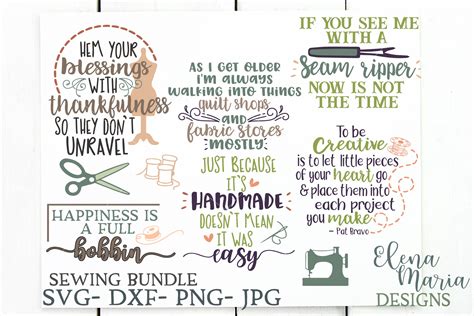 HEM YOUR
blessings
WITH
thankfulness
SO THEY DON'T
UNRAVEL
AS I GET OLDER
I'M ALWAYS
WALKING INTO THINGS
quilt shops
and
fabric stores
MOSTLY
IF YOU SEE ME
WITH A
Seam ripper
NOW IS NOT
THE TIME
To be
Creative
is to let little pieces
of your heart go
& place them into
each project
you make
- Pat Bravo
JUST BECAUSE
IT'S
HANDMADE
DOESN'T MEAN
IT WAS
easy
HAPPINESS IS
A FULL
bobbin
SEWING BUNDLE
SVG- DXF- PNG- JPG
Elena
Maria
DESIGNS